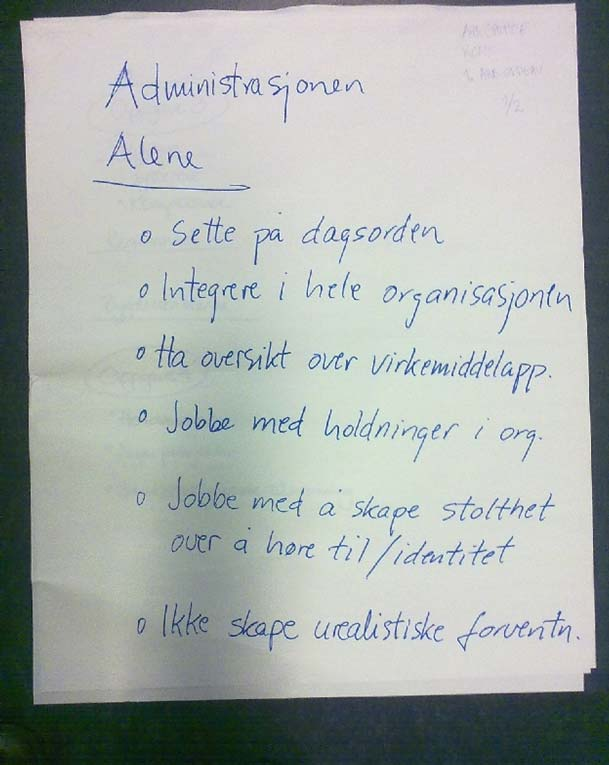 Administrasjonen
Alene
o Sette på dagsorden
o Integrere i hele organisasjonen
o Ha oversikt over virkemiddelapp.
o Jobbe med holdninger i org.
o Jobbe med å skape stolthet
over å høre til/identitet
o Ikke skape urealistiske forventn.